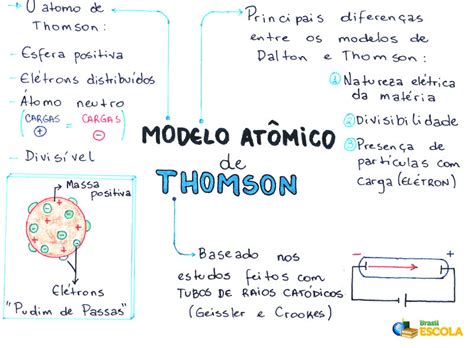 O átomo de
Thomson:
- Esfera positiva
- Elétrons distribuídos
- Átomo neutro
(CARGAS = CARGAS)
+ -
- Divisível
Massa
positiva
Elétrons
"Pudim de Passas"
MODELO ATÔMICO
de
THOMSON
Principais diferenças
entre os modelos de
Dalton e Thomson:
1 Natureza elétrica
da matéria
2 Divisibilidade
3 Presença de
partículas com
carga (ELÉTRON)
Baseado nos
estudos feitos com
TUBOS DE RAIOS CATÓDICOS
(Geissler e Crookes)
- +
Brasil
ESCOLA